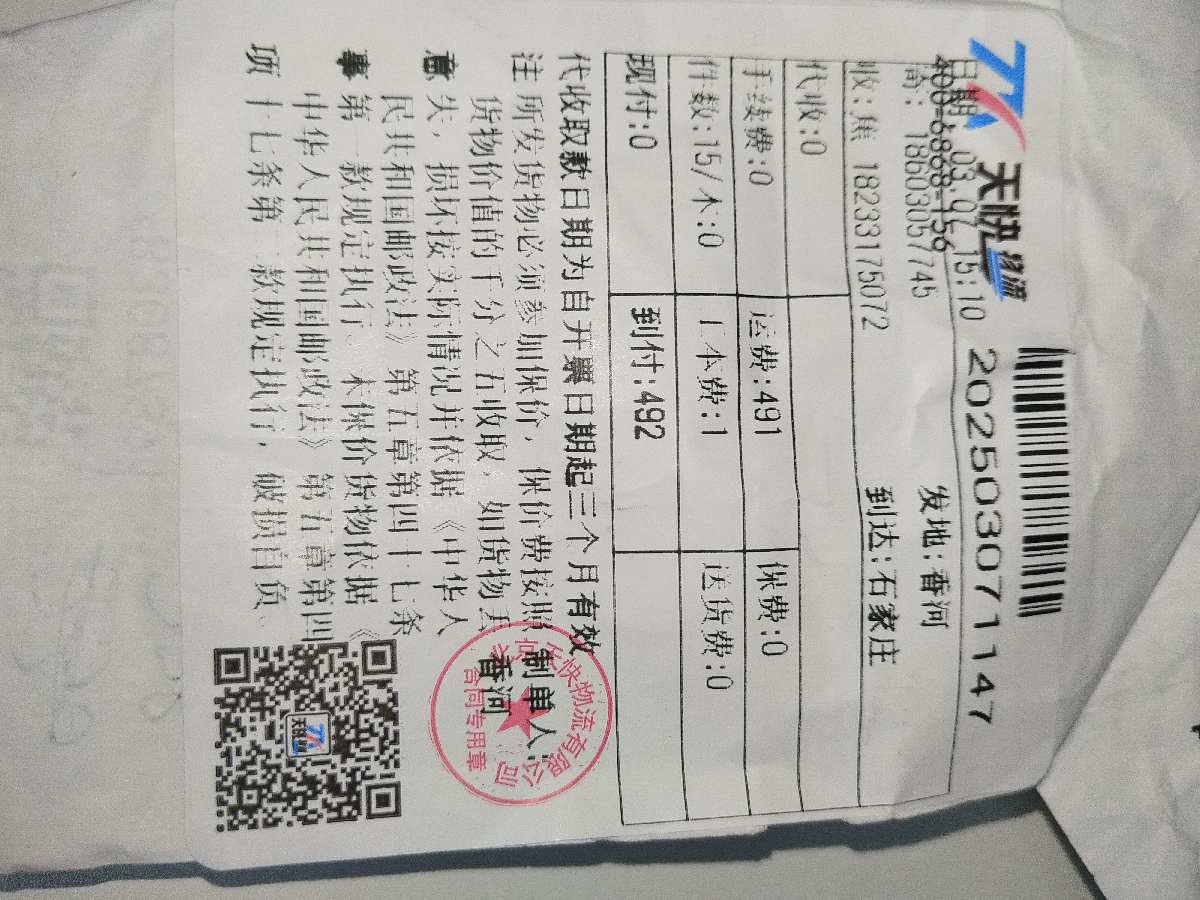 天快物流
400-6868-156
202503071147
日期 03.07 15:10
高: 18603057745 发地:香河
收:焦 18233175072 到达:石家庄
代收:0
手续费:0 运费:491 保费:0
件数:15/木:0 工本费:1 送货费:0
现付:0 到付:492
代收取款日期为自开票日期起三个月有效
注 所发货物必须参加保价，保价费按照
货物价值的千分之五收取，如货物丢
意 失，损坏按实际情况并依据《中华人
民共和国邮政法》第五章第四十七条
事 第一款规定执行。未保价货物依据《
中华人民共和国邮政法》第五章第四
项 十七条第二款规定执行，破损自负
制单人:
香河
天快物流有限公司
合同专用章
天快物流